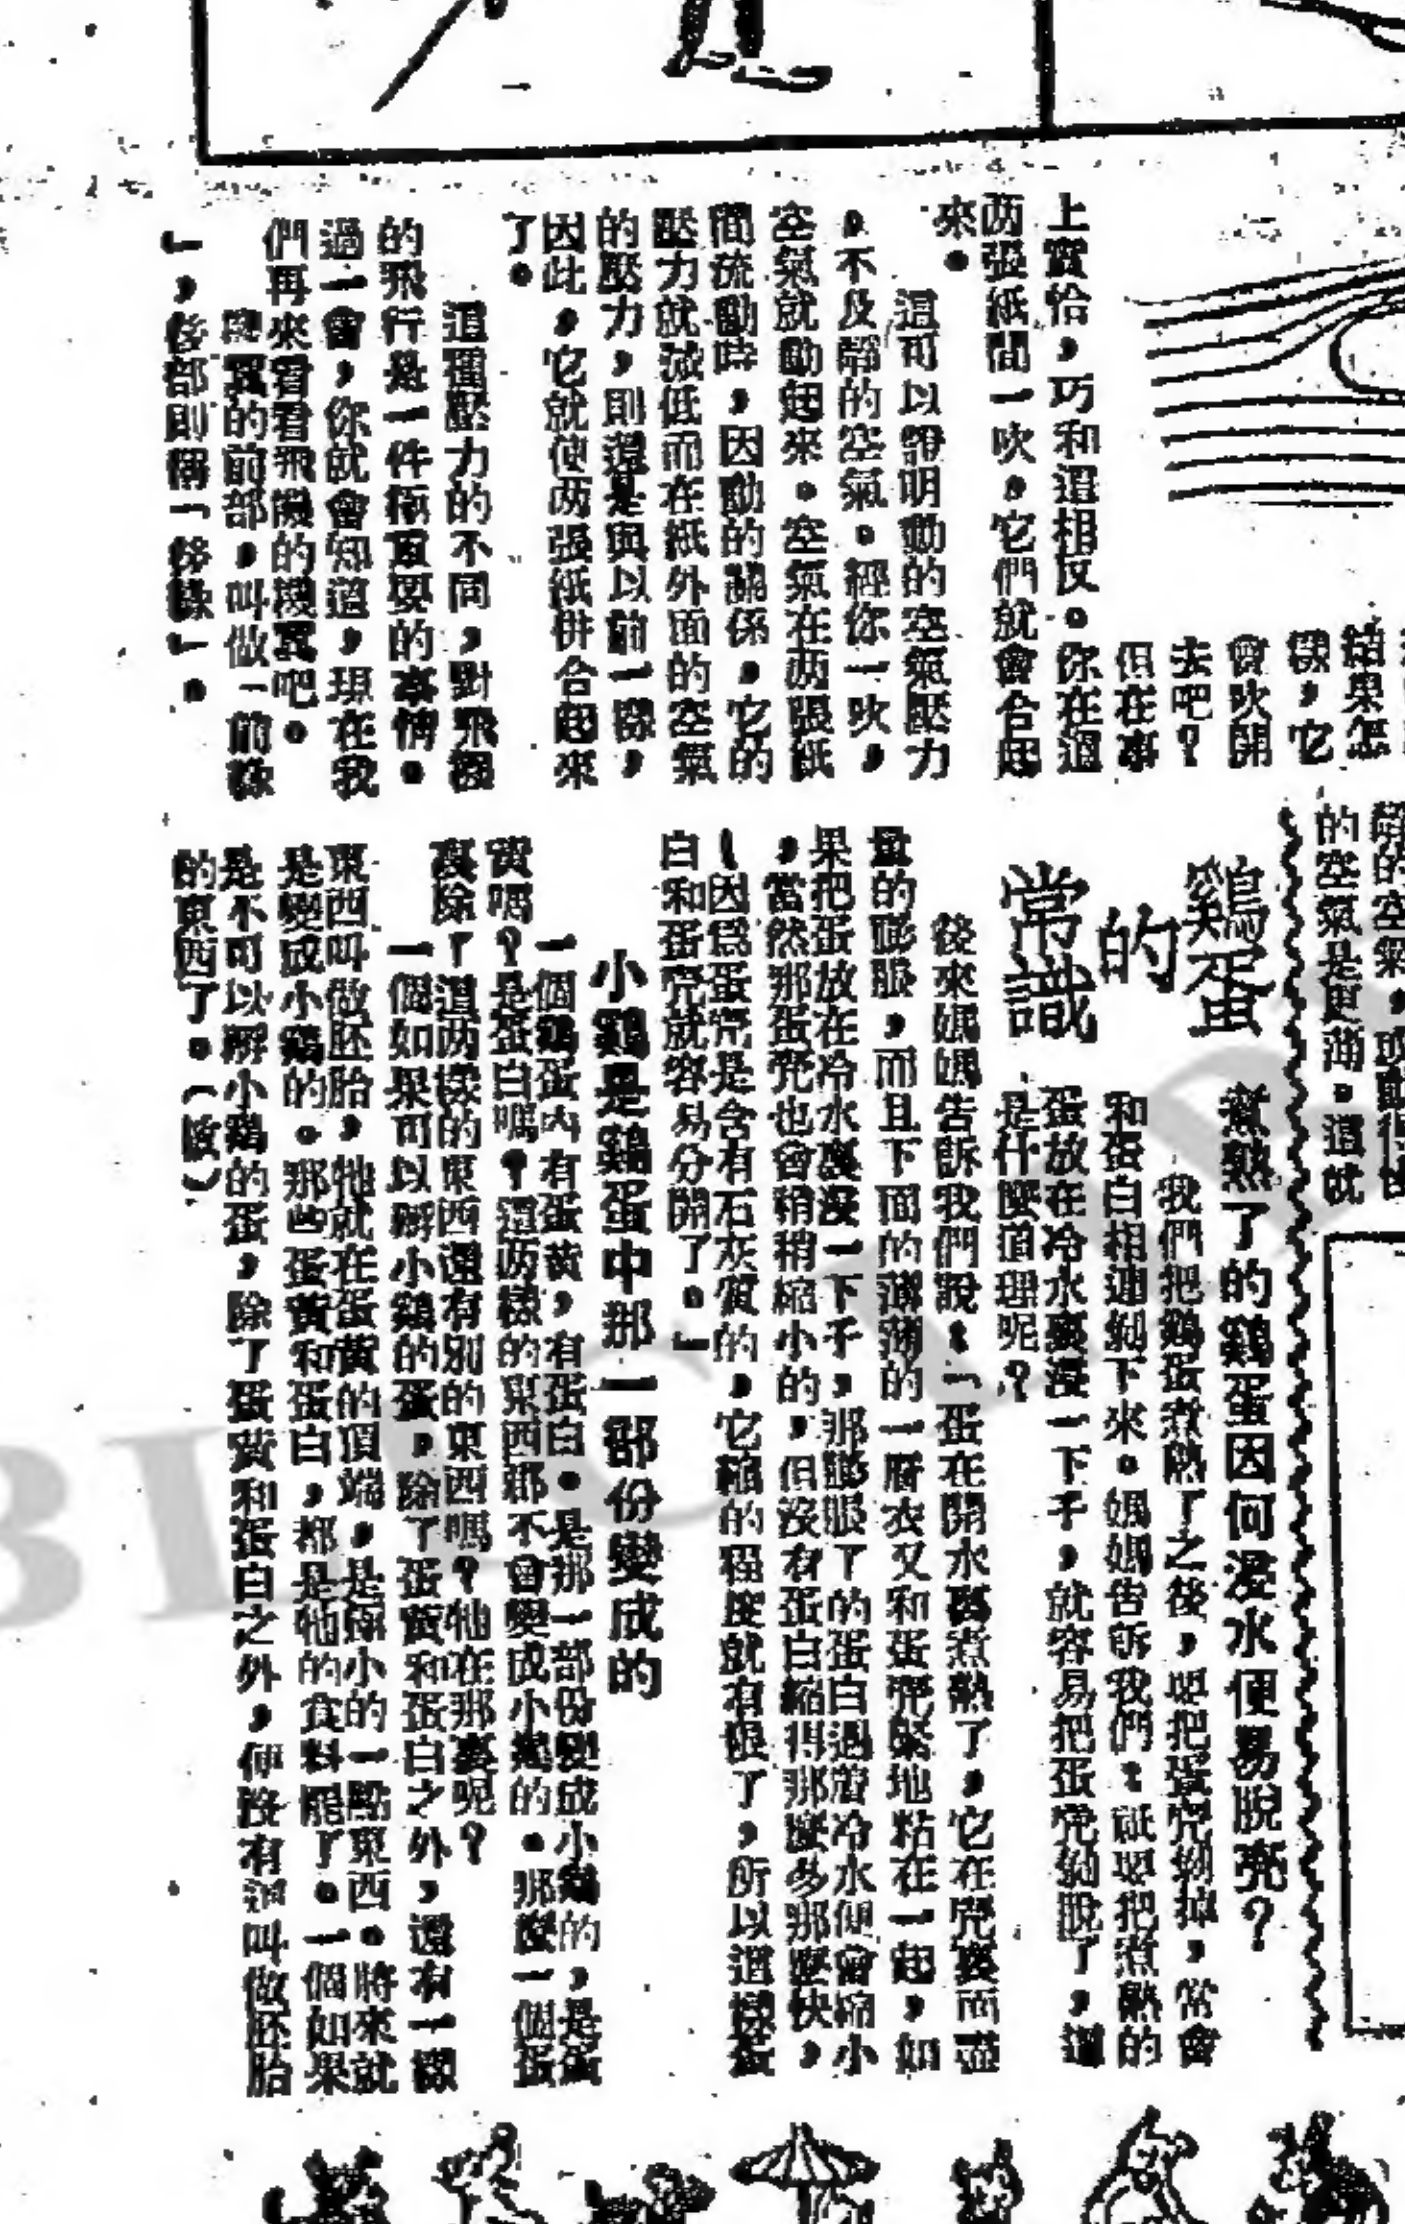 結果怎
樣，它
會吹開
去吧？
但在事
上實恰，巧和這相反。你在這
两張紙間一吹，它們就會合起
來。
這可以證明動的空氣壓力
，不及靜的空氣。經你一吹，
空氣就動起來。空氣在两張紙
間流動時，因動的關係，它的
壓力就減低而在紙外面的空氣
的壓力，則還是與以前一樣，
因此，它就使两張紙併合起來
了。
這種壓力的不同，對飛機
的飛行是一件極重要的事情。
過一會，你就會知道，現在我
們再來看看飛機的機翼吧。
機翼的前部，叫做「前緣
」，後部則稱「後緣」。
靜的空氣，
的空氣是更薄。這就
鷄蛋
的
常識
煮熟了的鷄蛋因何浸水便易脫壳？
我們把鷄蛋煮熟了之後，要把蛋壳剝掉，常會
和蛋白相連剝下來。媽媽告訴我們：祇要把煮熟的
蛋放在冷水裏浸一下子，就容易把蛋壳剝脫了，這
是什麼道理呢？
後來媽媽告訴我們說：「蛋在開水裏煮熟了，它在壳裏面盡
量的膨脹，而且下面的薄薄的一層衣又和蛋壳緊緊地粘在一起，如
果把蛋放在冷水裏浸一下子，那膨脹了的蛋白遇着冷水便會縮小
，當然那蛋壳也會稍稍縮小的，但沒有蛋白縮得那麼多那麼快，
因爲蛋壳是含有石灰質的，它縮的程度就有限了，所以這樣蛋
白和蛋壳就容易分開了。」
小鷄是鷄蛋中那一部份變成的
一個鷄蛋內有蛋黃，有蛋白。是那一部份變成小鷄的，是蛋
黃嗎？是蛋白嗎？這两樣的東西都不會變成小鷄的。那麼一個蛋
裏除了這两樣的東西還有別的東西嗎？牠在那裏呢？
一個如果可以孵小鷄的蛋，除了蛋黃和蛋白之外，還有一樣
東西叫做胚胎，牠就在蛋黃的頂端，是很小的一點東西。將來就
是變成小鷄的。那些蛋黃和蛋白，都是牠的食料罷了。一個如果
是不可以孵小鷄的蛋，除了蛋黃和蛋白之外，便沒有這叫做胚胎
的東西了。（敏）